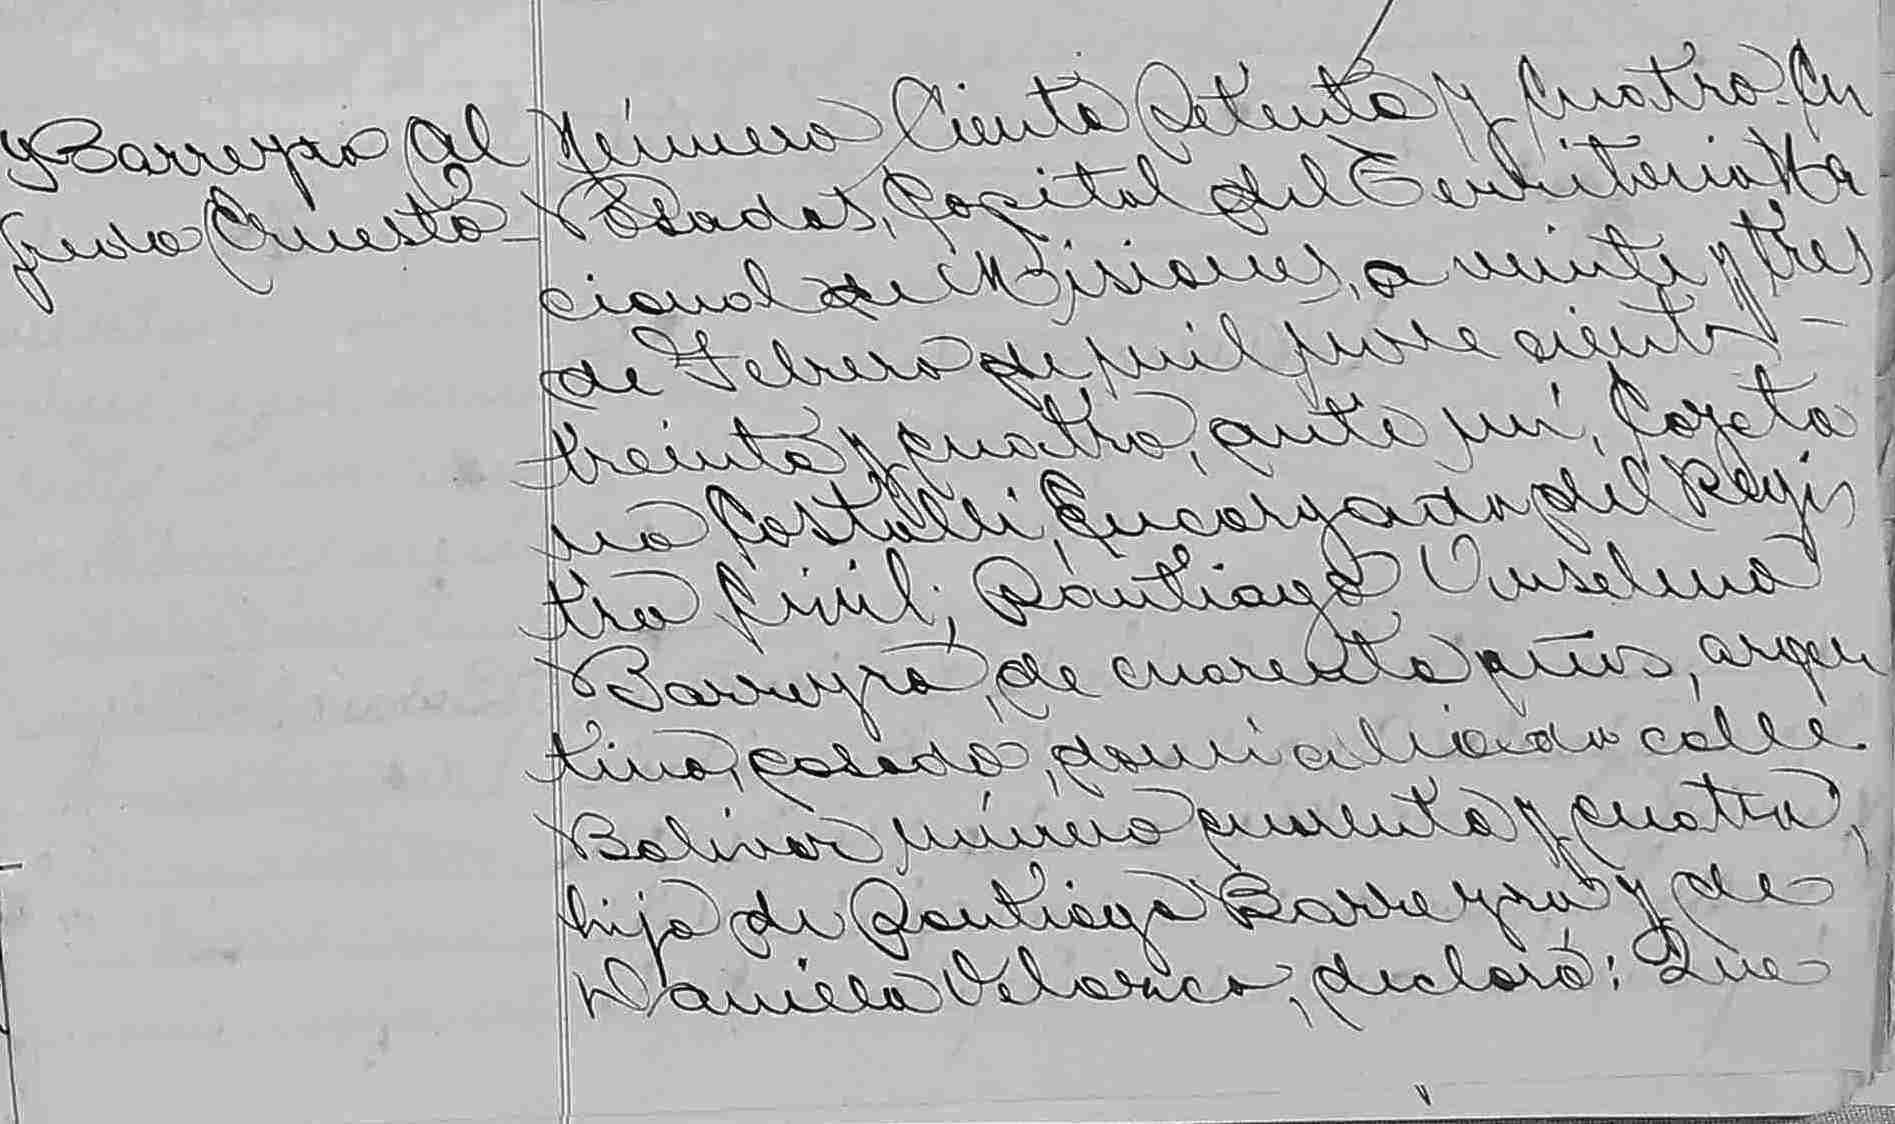 y Barreyro Al
fredo Ernesto
Número Ciento Setenta y cuatro. En
Posadas, Capital del Territorio Na
cional de Misiones, a veinte y tres
de Febrero de mil nove cientos –
treinta y cuatro, ante mí, Cayeta
no Castelli, Encargado del Regis
tro Civil; Santiago Anselmo
Barreyro, de cuarenta años, argen
tino, casado, domiciliado calle
Bolivar número cuarenta y cuatro,
hijo de Santiago Barreyro y de
Daniela Velazco, declaró: Que